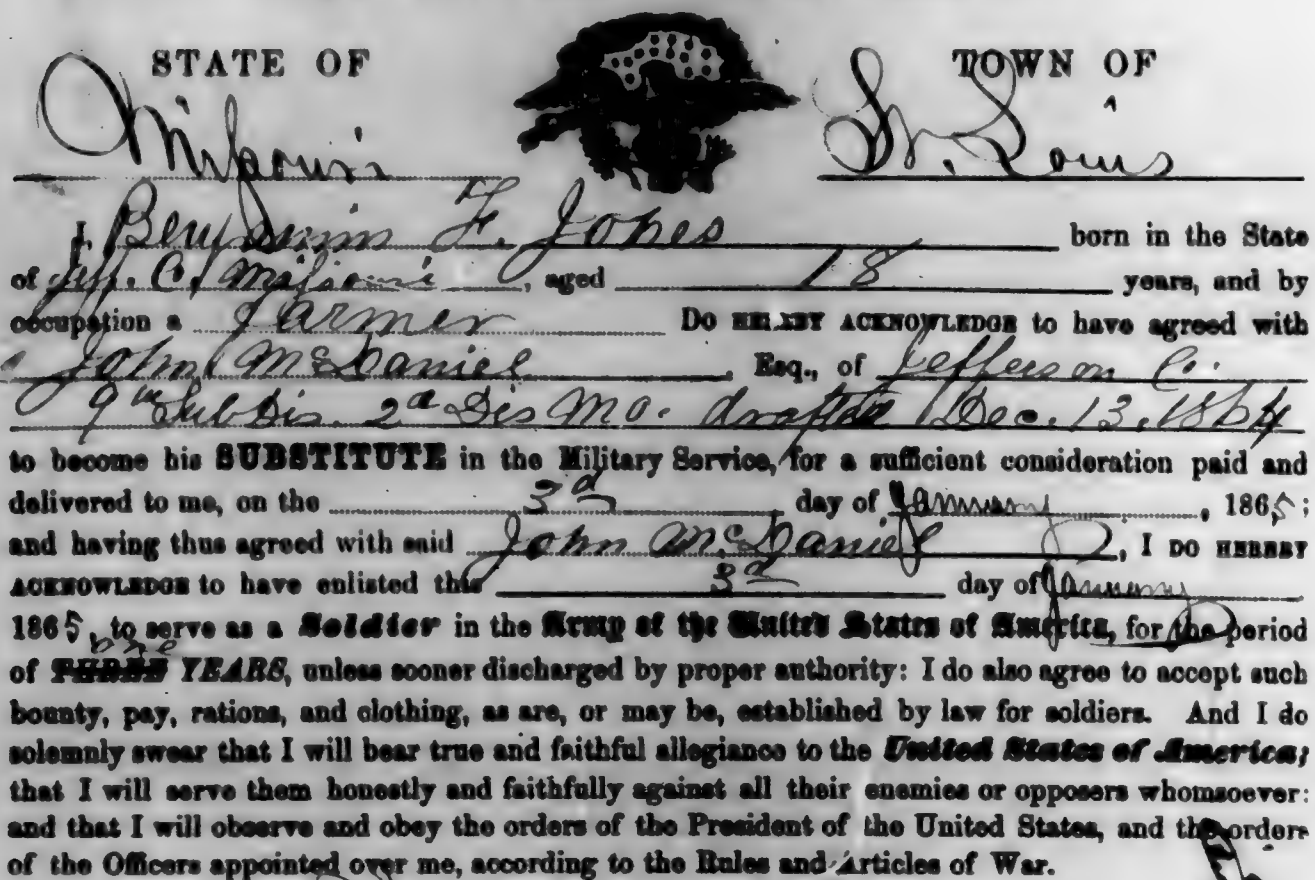 STATE OF
TOWN OF
Missouri
St. Louis
I, Benjamin F. Jones born in the State
of Jeff. C. Missouri, aged 18 years, and by
occupation a Farmer Do HEREBY ACKNOWLEDGE to have agreed with
John McDaniel, Esq., of Jefferson C.
9th Sub Dis. 2d Dis Mo. drafted Dec. 13, 1864
to become his SUBSTITUTE in the Military Service, for a sufficient consideration paid and
delivered to me, on the 3d day of January, 1865;
and having thus agreed with said John McDaniel, I DO HEREBY
ACKNOWLEDGE to have enlisted this 3d day of January
1865, to serve as a Soldier in the Army of the United States of America, for the period
one
of THREE YEARS, unless sooner discharged by proper authority: I do also agree to accept such
bounty, pay, rations, and clothing, as are, or may be, established by law for soldiers. And I do
solemnly swear that I will bear true and faithful allegiance to the United States of America;
that I will serve them honestly and faithfully against all their enemies or opposers whomsoever:
and that I will observe and obey the orders of the President of the United States, and the orders
of the Officers appointed over me, according to the Rules and Articles of War.